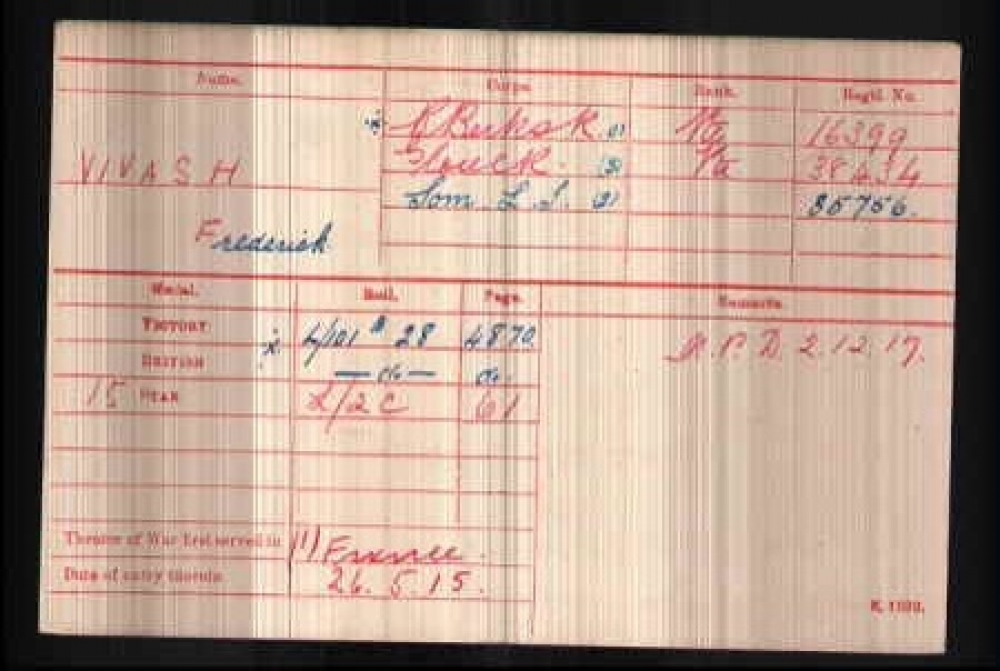 Name. Corps. Rank. Regtl. No.
R Berks R (1) Pte 16399
VIVASH Glouc R. (3) Pte 38434
Som L. I. (2) 35756.
Frederick
Medal. Roll. Page. Remarks.
VICTORY 4/101 B 28 4870
BRITISH — do — do.
15 STAR 2/2 C 61
2.12.17.
Theatre of War first served in (1) France.
Date of entry therein 26.5.15.
K. 1380.